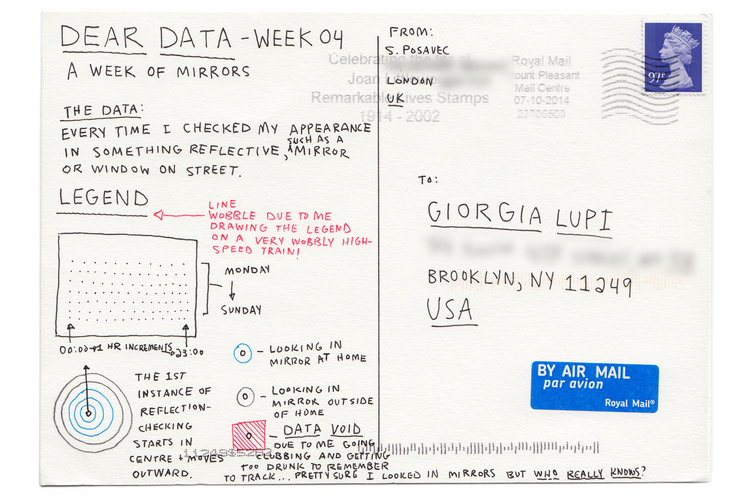 DEAR DATA - WEEK 04
A WEEK OF MIRRORS
THE DATA:
EVERY TIME I CHECKED MY APPEARANCE
IN SOMETHING REFLECTIVE, SUCH AS A MIRROR
OR WINDOW ON STREET.
LEGEND
LINE
WOBBLE DUE TO ME
DRAWING THE LEGEND
ON A VERY WOBBLY HIGH-
SPEED TRAIN!
MONDAY
SUNDAY
00:00 → 1 HR INCREMENTS → 23:00
THE 1ST
INSTANCE OF
REFLECTION-
CHECKING
STARTS IN
CENTRE + MOVES
OUTWARD.
- LOOKING IN
MIRROR AT HOME
- LOOKING IN
MIRROR OUTSIDE
OF HOME
- DATA VOID
DUE TO ME GOING
CLUBBING AND GETTING
TOO DRUNK TO REMEMBER
TO TRACK... PRETTY SURE I LOOKED IN MIRRORS BUT WHO REALLY KNOWS?
FROM:
S. POSAVEC
LONDON
UK
Celebrating
Joan
Remarkable Lives Stamps
1914 - 2002
Royal Mail
ount Pleasant
Mail Centre
07-10-2014
97P
TO:
GIORGIA LUPI
BROOKLYN, NY 11249
USA
BY AIR MAIL
par avion
Royal Mail®